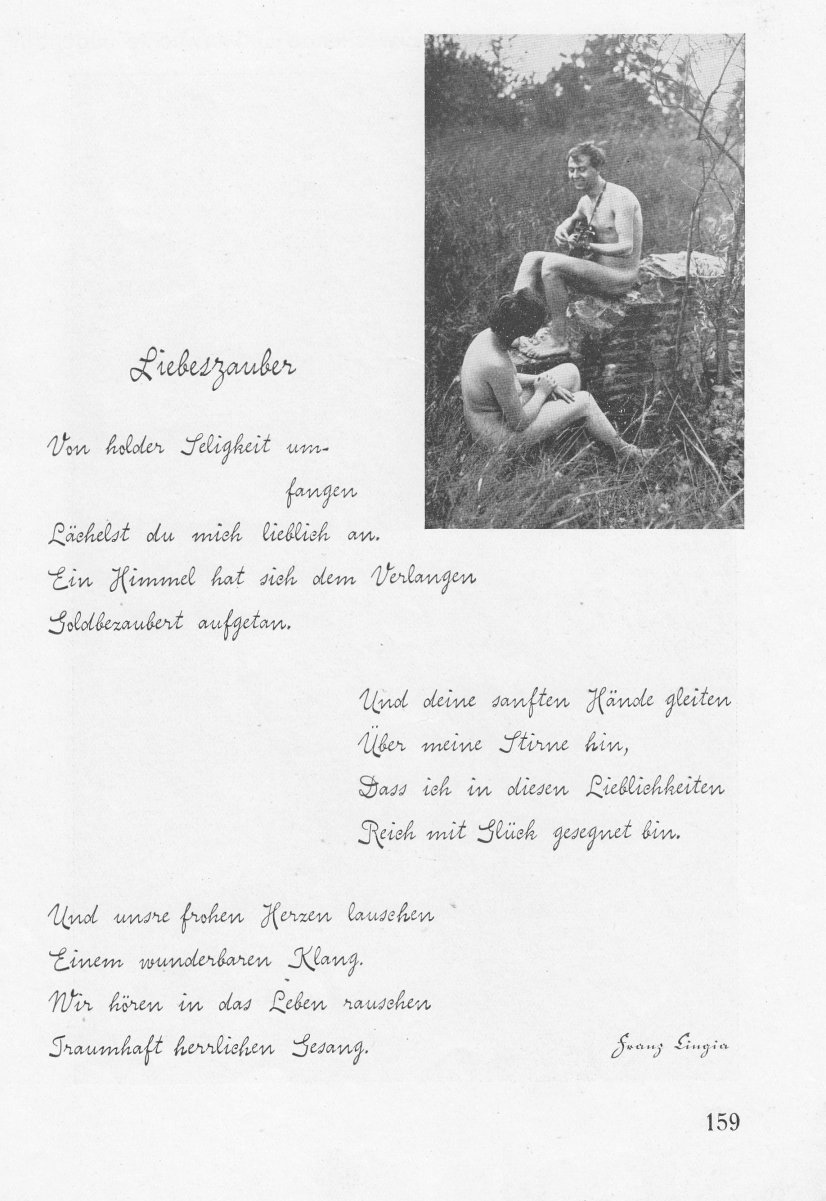 Liebeszauber
Von holder Seligkeit um-
fangen
Lächelst du mich lieblich an.
Ein Himmel hat sich dem Verlangen
Goldbezaubert aufgetan.
Und deine sanften Hände gleiten
Über meine Stirne hin,
Dass ich in diesen Lieblichkeiten
Reich mit Glück gesegnet bin.
Und unsre frohen Herzen lauschen
Einem wunderbaren Klang.
Wir hören in das Leben rauschen
Traumhaft herrlichen Gesang.
Franz Lingia
159